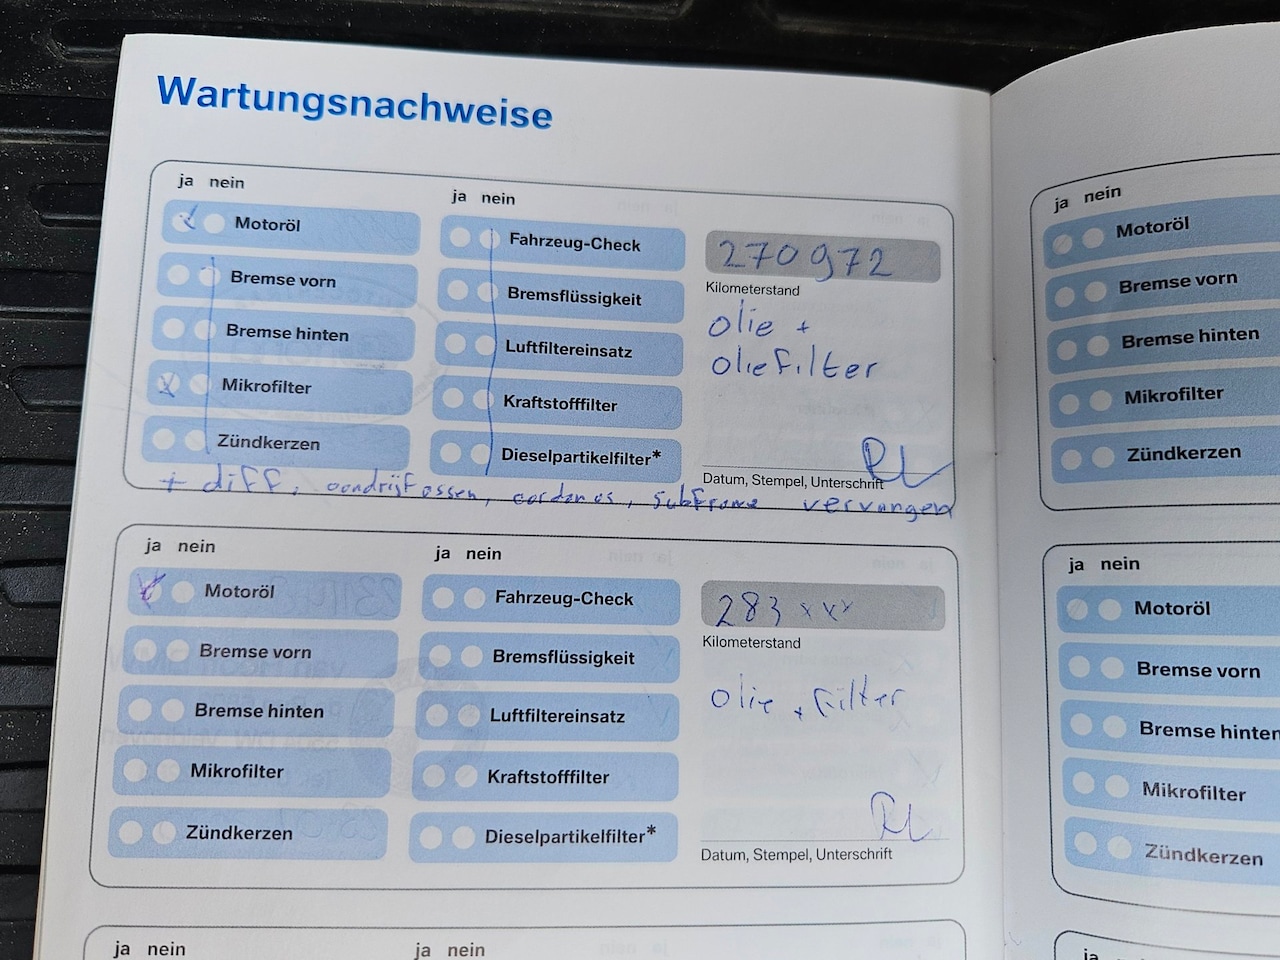 Wartungsnachweise
ja nein
Motoröl
Bremse vorn
Bremse hinten
Mikrofilter
Zündkerzen
ja nein
Fahrzeug-Check
Bremsflüssigkeit
Luftfiltereinsatz
Kraftstofffilter
Dieselpartikelfilter*
270972
Kilometerstand
olie +
oliefilter
Datum, Stempel, Unterschrift
+ diff, aandrijfassen, cardanas, subframe vervangen
ja nein
Motoröl
Bremse vorn
Bremse hinten
Mikrofilter
Zündkerzen
ja nein
Fahrzeug-Check
Bremsflüssigkeit
Luftfiltereinsatz
Kraftstofffilter
Dieselpartikelfilter*
283xxx
Kilometerstand
olie + filter
Datum, Stempel, Unterschrift
ja nein
ja nein
ja nein
Motoröl
Bremse vorn
Bremse hinten
Mikrofilter
Zündkerzen
ja nein
Motoröl
Bremse vorn
Bremse hinten
Mikrofilter
Zündkerzen
ja